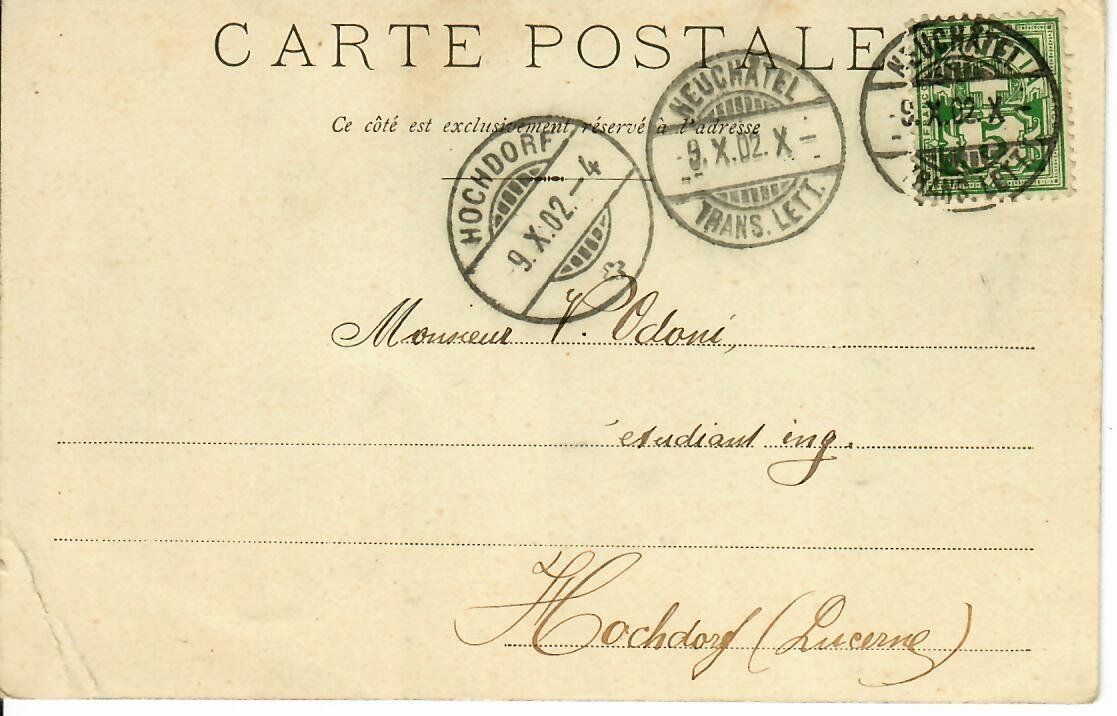 CARTE POSTALE
Ce côté est exclusivement réservé à l'adresse
NEUCHATEL
-9.X.02.X-
TRANS. LETT.
NEUCHATEL
-9.X.02.X-
TRANS. LETT.
HOCHDORF
-9.X.02.-4
Monsieur V. Odoni,
étudiant ing.
Hochdorf (Lucerne)